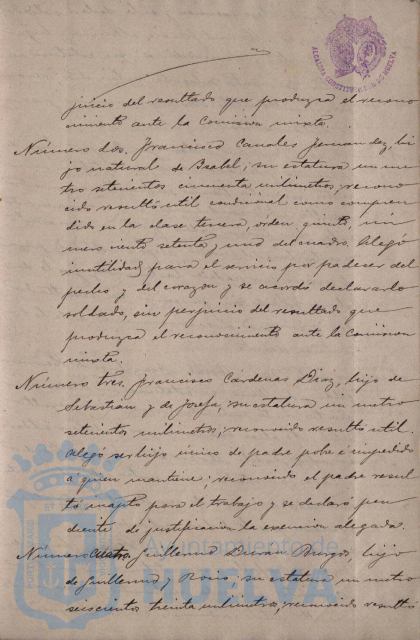 ALCALDIA CONSTITUCIONAL DE HUELVA
juicio del resultado que produzca el recono-
cimiento ante la Comision mixta.
Número dos. Francisco Canales Jernandez, hi-
jo natural de Isabel; su estatura un me-
tro setecientos cincuenta milimetros, recono-
cido resultó util condicional como compren-
dido en la clase tercera, orden quinto, nú-
mero ciento setenta y uno del cuadro. Alegó
inutilidad para el servicio por padecer del
pecho y del corazon y se acordó declararlo
soldado, sin perjuicio del resultado que
produzca el reconocimiento ante la Comision
mixta.
Número tres. Francisco Cárdenas Diaz, hijo de
Sebastián y de Josefa, su estatura un metro
setecientos milimetros; reconocido resultó util.
Alegó ser hijo único de padre pobre é impedido
á quien mantiene; reconocido el padre resul-
tó inapto para el trabajo y se declaró pen-
diente de justificacion la exencion alegada.
Número cuatro. Guillermo Duran Burgos, hijo
de Guillermo y Rocio; su estatura un metro
seiscientos treinta milimetros, reconocido resultó
Ayuntamiento de
HUELVA